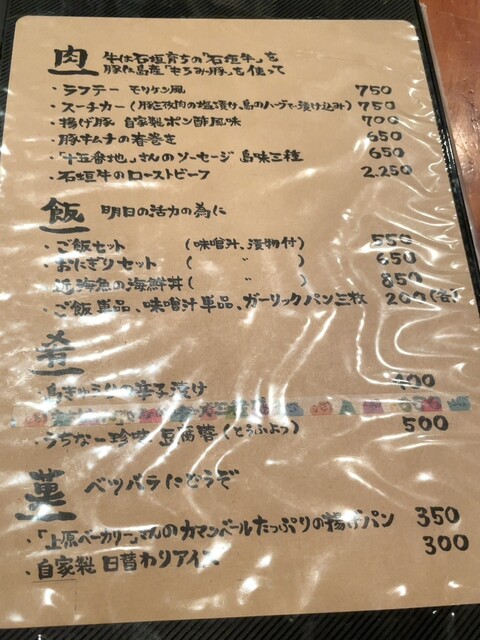 肉 牛は石垣育ちの「石垣牛」を
豚は島産「もろみ豚」を使って
・ラフテー モリケン風 750
・スーチカー(豚三枚肉の塩漬け、島のハーブで漬け込み) 750
・揚げ豚 自家製ポン酢風味 700
・豚キムチの春巻き 650
・「十五番地」さんのソーセージ 島味三種 650
・石垣牛のローストビーフ 2.250
飯 明日の活力の為に
・ご飯セット (味噌汁、漬物付) 550
・おにぎりセット ( 〃 ) 650
近海魚の海鮮丼 ( 〃 ) 850
・ご飯単品、味噌汁単品、ガーリックパン三枚 200(各)
肴
島きゅうりの辛子漬け 400
・うちなー珍味 豆腐蓉(とうふよう) 500
菓 ベツバラにどうぞ
・「上原ベーカリー」さんのカマンベールたっぷりの揚げパン 350
・自家製 日替わりアイス 300